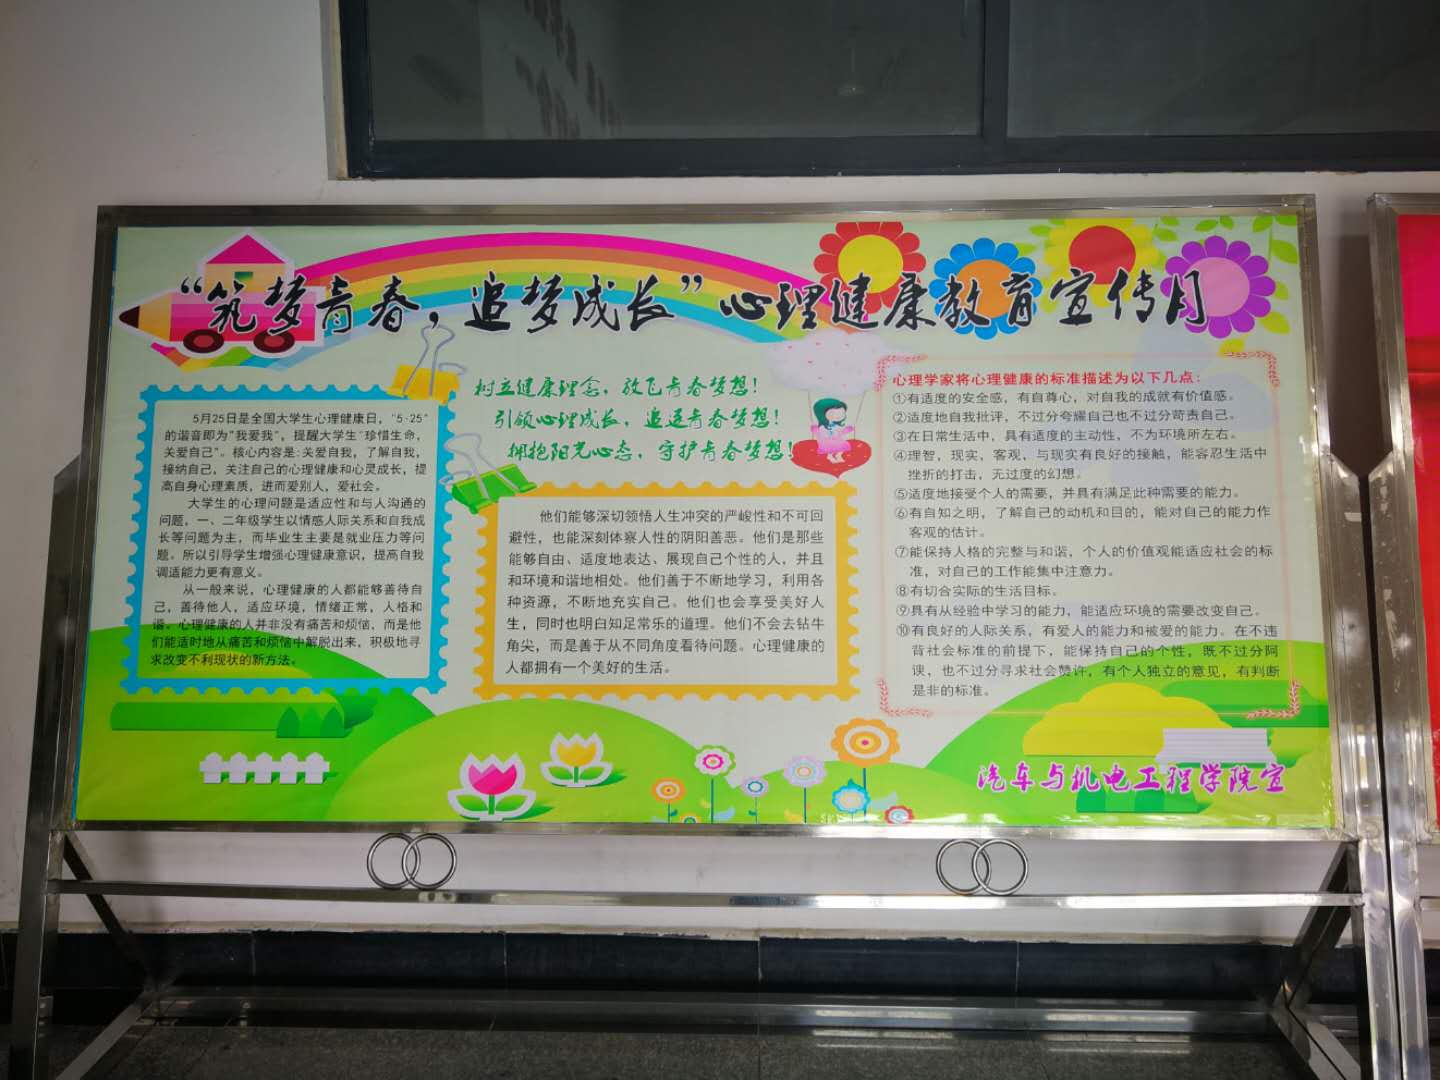 “筑梦青春，追梦成长”心理健康教育宣传月
树立健康理念，放飞青春梦想！
引领心理成长，追逐青春梦想！
拥抱阳光心态，守护青春梦想！
5月25日是全国大学生心理健康日，“5·25”
的谐音即为“我爱我”，提醒大学生“珍惜生命，
关爱自己”。核心内容是：关爱自我，了解自我，
接纳自己，关注自己的心理健康和心灵成长，提
高自身心理素质，进而爱别人，爱社会。
大学生的心理问题是适应性和与人沟通的
问题，一、二年级学生以情感人际关系和自我成
长等问题为主，而毕业生主要是就业压力等问
题。所以引导学生增强心理健康意识，提高自我
调适能力更有意义。
从一般来说，心理健康的人都能够善待自
己，善待他人，适应环境，情绪正常，人格和
谐。心理健康的人并非没有痛苦和烦恼，而是他
们能适时地从痛苦和烦恼中解脱出来，积极地寻
求改变不利现状的新方法。
他们能够深切领悟人生冲突的严峻性和不可回
避性，也能深刻体察人性的阴阳善恶。他们是那些
能够自由、适度地表达、展现自己个性的人，并且
和环境和谐地相处。他们善于不断地学习，利用各
种资源，不断地充实自己。他们也会享受美好人
生，同时也明白知足常乐的道理。他们不会去钻牛
角尖，而是善于从不同角度看待问题。心理健康的
人都拥有一个美好的生活。
心理学家将心理健康的标准描述为以下几点：
①有适度的安全感，有自尊心，对自我的成就有价值感。
②适度地自我批评，不过分夸耀自己也不过分苛责自己。
③在日常生活中，具有适度的主动性，不为环境所左右。
④理智，现实，客观，与现实有良好的接触，能容忍生活中
挫折的打击，无过度的幻想。
⑤适度地接受个人的需要，并具有满足此种需要的能力。
⑥有自知之明，了解自己的动机和目的，能对自己的能力作
客观的估计。
⑦能保持人格的完整与和谐，个人的价值观能适应社会的标
准，对自己的工作能集中注意力。
⑧有切合实际的生活目标。
⑨具有从经验中学习的能力，能适应环境的需要改变自己。
⑩有良好的人际关系，有爱人的能力和被爱的能力。在不违
背社会标准的前提下，能保持自己的个性，既不过分阿
谀，也不过分寻求社会赞许，有个人独立的意见，有判断
是非的标准。
汽车与机电工程学院宣